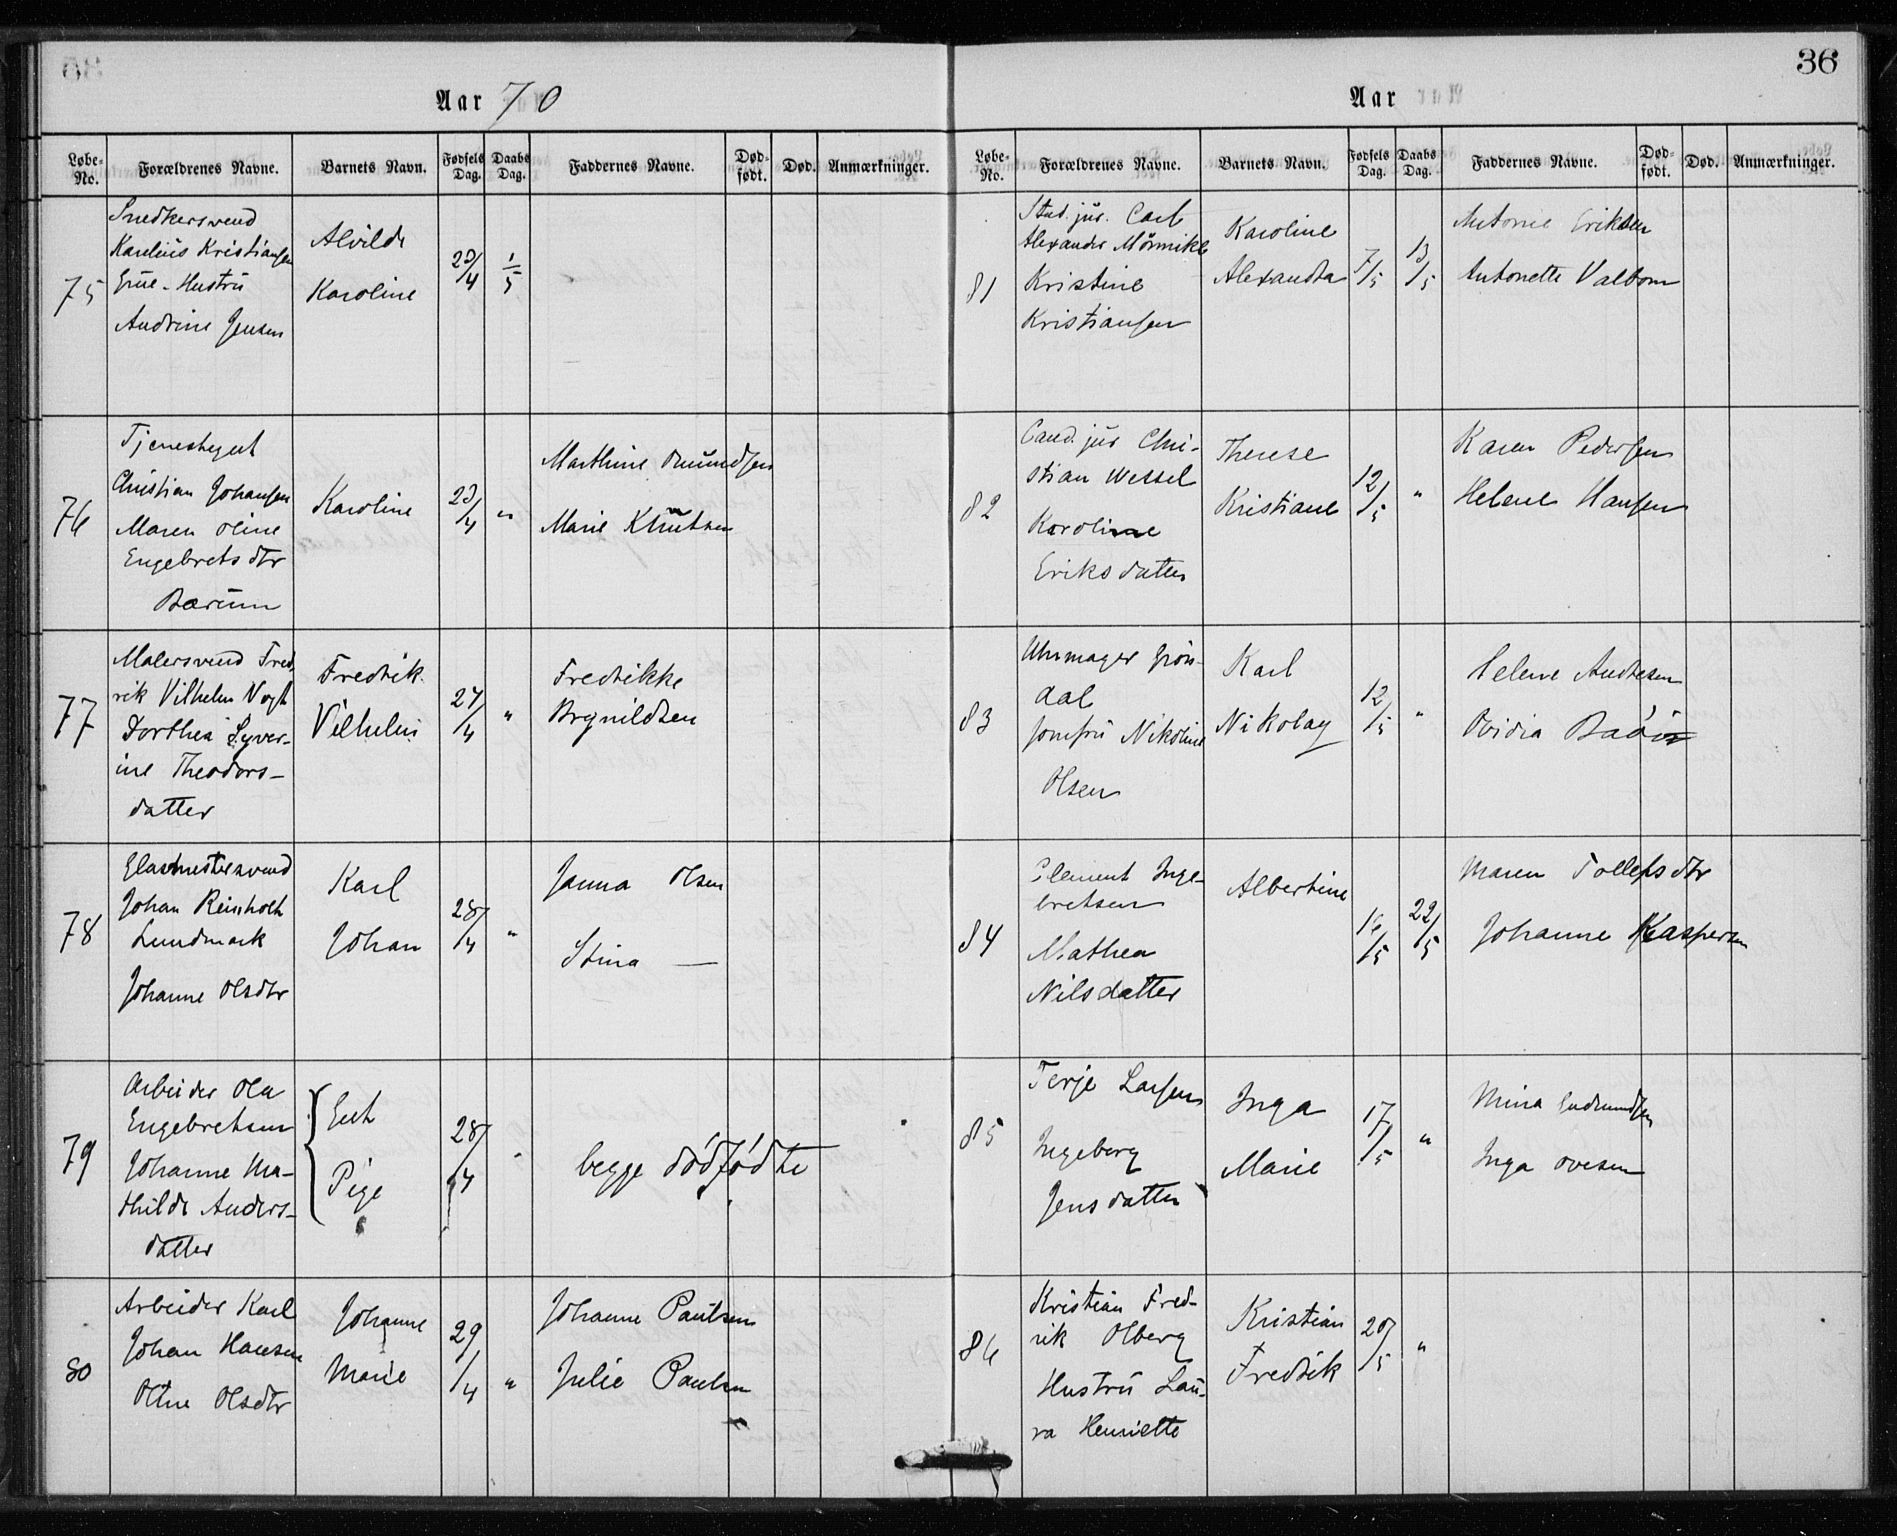 36
Aar 70
Løbe-No. Forældrenes Navne. Barnets Navn. Fødsels Dag. Daabs Dag. Faddernes Navne. Død-født. Død. Anmærkninger.
75
Snedkersvend
Karelius Kristiansen
Hustru
Andrine Jensen
Alvilde
Karoline
23/4
1/5
76
Tjenestegut
Christian Johansen
Maren Oline
Engebretsdtr
Bærum
Karoline
23/4
"
Marthine Amundsen
Marie Knutsen
77
Malersvend Fred
rik Vilhelm Vogt
Dorthea Syver-
ine Theodors-
datter
Fredrik
Vilhelm
27/4
"
Fredrikke
Brynildsen
78
Glasmestersvend
Johan Reinholth
Lundmark
Johanne Olsdtr
Karl
Johan
28/4
"
Janna Olsen
Stina —
79
Arbeider Ola
Engebretsen
Johanne Ma-
thilde Anders-
datter
Gut
Pige
28/4
"
begge dödfödte
80
Arbeider Karl
Johan Hansen
Oline Olsdtr
Johanne
Marie
29/4
"
Johanne Paulsen
Julie Paulsen
Aar
Løbe-No. Forældrenes Navne. Barnets Navn. Fødsels Dag. Daabs Dag. Faddernes Navne. Død-født. Død. Anmærkninger.
81
Stud. jur. Carl
Alexander Mönniche
Kristine
Kristiansen
Karoline
Alexandra
7/5
13/5
Antonie Eriksen
Antonette Valbom
82
Cand. jur Chri-
stian Wessel
Karoline
Eriksdatter
Therese
Kristiane
12/5
"
Karen Pedersen
Helene Hansen
83
Uhrmager Grön-
dal
Jomfru Nikoline
Olsen
Karl
Nikolay
12/5
"
Helene Andresen
Ovidia
84
Clement Inge-
bretsen
Mathea
Nilsdatter
Albertine
16/5
22/5
Maren Tollefsdtr
Johanne Kaspersen
85
Terje Larsen
Ingeborg
Jensdatter
Inga
Marie
17/5
"
Mina Gudmundsen
Inga Ovesen
86
Kristian Fred-
rik Olberg
Hustru Lau-
ra Henriette
Kristian
Fredrik
20/5
"